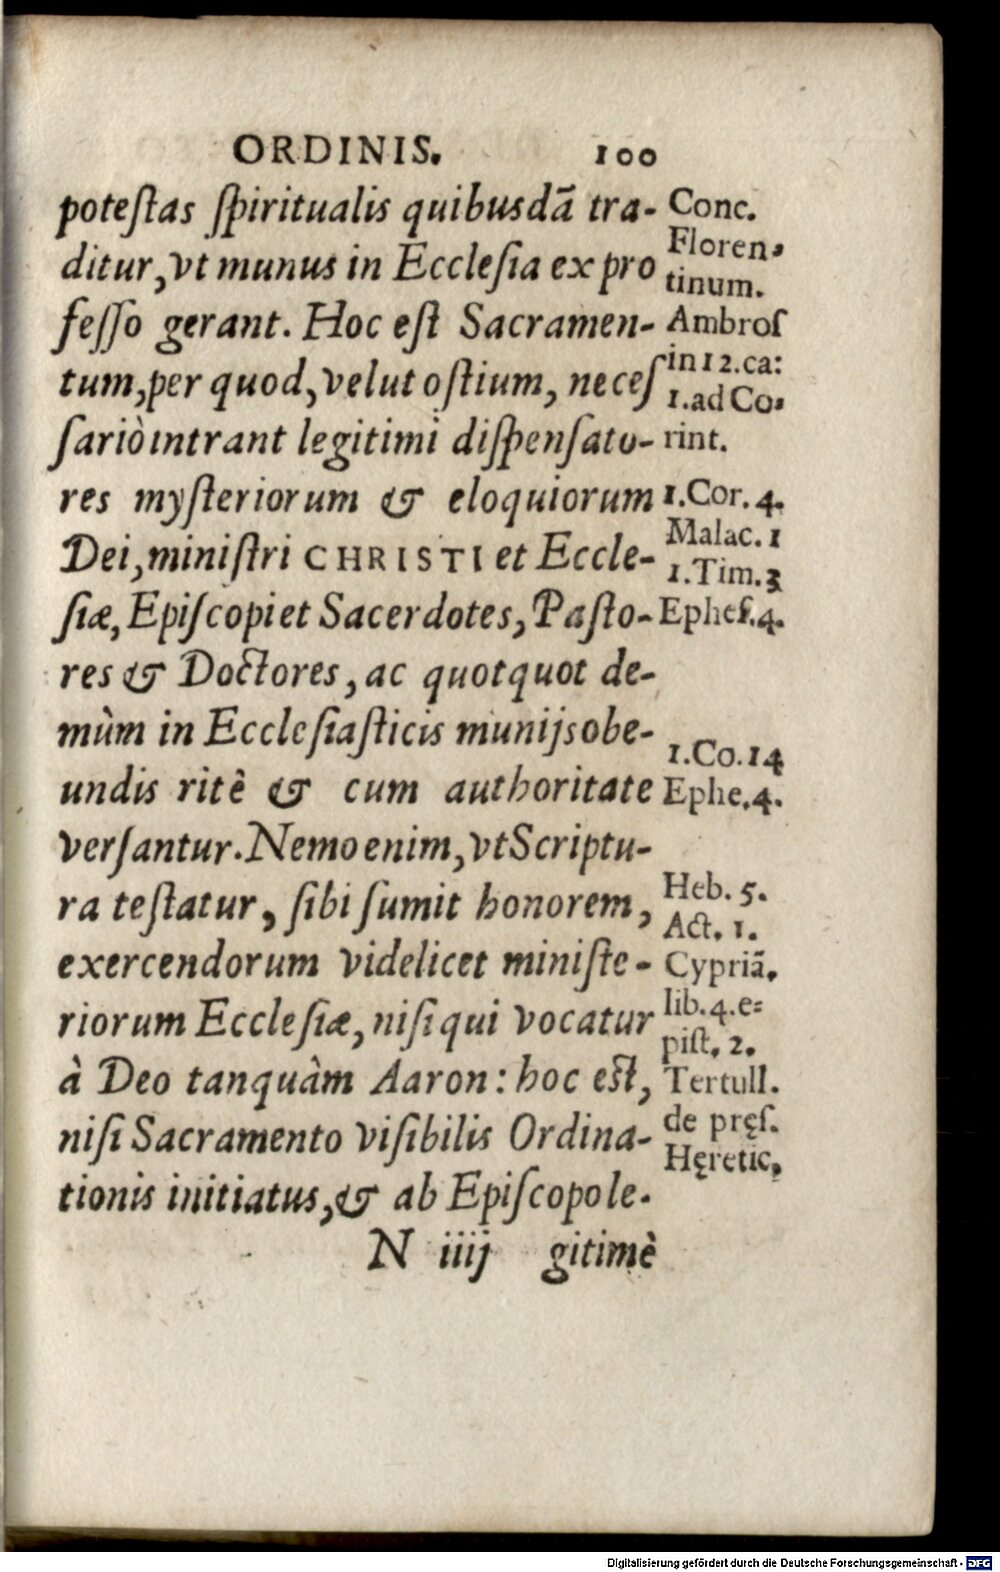 ORDINIS. 100
poteſtas ſpiritualis quibusdã tra-
ditur, vt munus in Eccleſia ex pro
feſſo gerant. Hoc eſt Sacramen-
tum, per quod, velut oſtium, neceſ
ſariò intrant legitimi diſpenſato-
res myſteriorum & eloquiorum
Dei, miniſtri CHRISTI et Eccle-
ſiæ, Epiſcopi et Sacerdotes, Paſto-
res & Doctores, ac quotquot de-
mùm in Eccleſiaſticis munijs obe-
undis ritè & cum authoritate
verſantur. Nemo enim, vt Scriptu-
ra teſtatur, ſibi ſumit honorem,
exercendorum videlicet miniſte-
riorum Eccleſiæ, niſi qui vocatur
à Deo tanquàm Aaron: hoc eſt,
niſi Sacramento viſibilis Ordina-
tionis initiatus, & ab Epiſcopo le-
N iiij gitimè
Conc.
Floren-
tinum.
Ambroſ
in 12. ca:
1. ad Co-
rint.
1. Cor. 4.
Malac. 1
1. Tim. 3
Epheſ. 4.
1. Co. 14
Ephe. 4.
Heb. 5.
Act. 1.
Cypriã.
lib. 4. e-
piſt. 2.
Tertull.
de pręſ.
Hęretic.
Digitalisierung gefördert durch die Deutsche Forschungsgemeinschaft - DFG